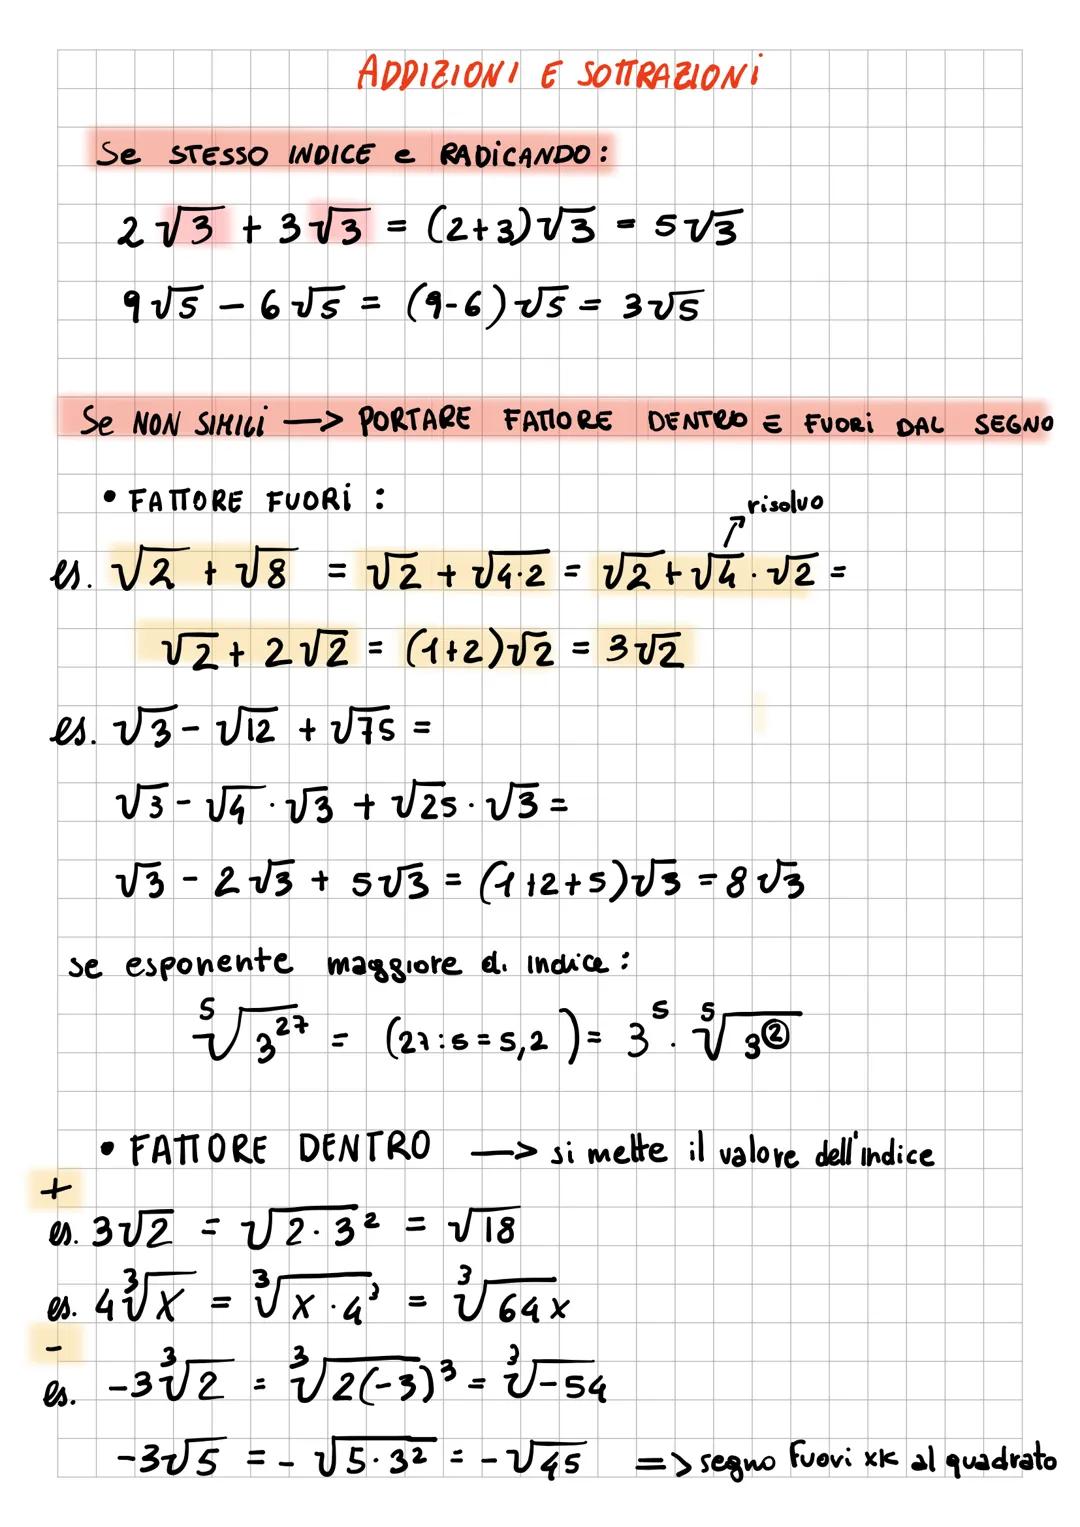 ADDIZIONI E SOTTRAZIONI
Se STESSO INDICE e RADICANDO:
2√3 + 3√3 = (2+3)√3 = 5√3
9√5 - 6√5 = (9-6)√5 = 3√5
Se NON SIMILI —> PORTARE FATTORE DENTRO E FUORI DAL SEGNO
• FATTORE FUORI :
risolvo
es. √2 + √8 = √2 + √4·2 = √2 + √4 · √2 =
√2 + 2√2 = (1+2)√2 = 3√2
es. √3 - √12 + √75 =
√3 - √4 · √3 + √25 · √3 =
√3 - 2√3 + 5√3 = (1+2+5)√3 = 8√3
se esponente maggiore di indice :
⁵√3²⁷ = (27:5=5,2) = 3⁵ · ⁵√3②
• FATTORE DENTRO —> si mette il valore dell'indice
+
es. 3√2 = √2·3² = √18
es. 4³√x = ³√x·4³ = ³√64x
-
es. -3³√2 = ³√2(-3)³ = ³√-54
-3√5 = -√5·3² = -√45 => segno fuori xk al quadrato